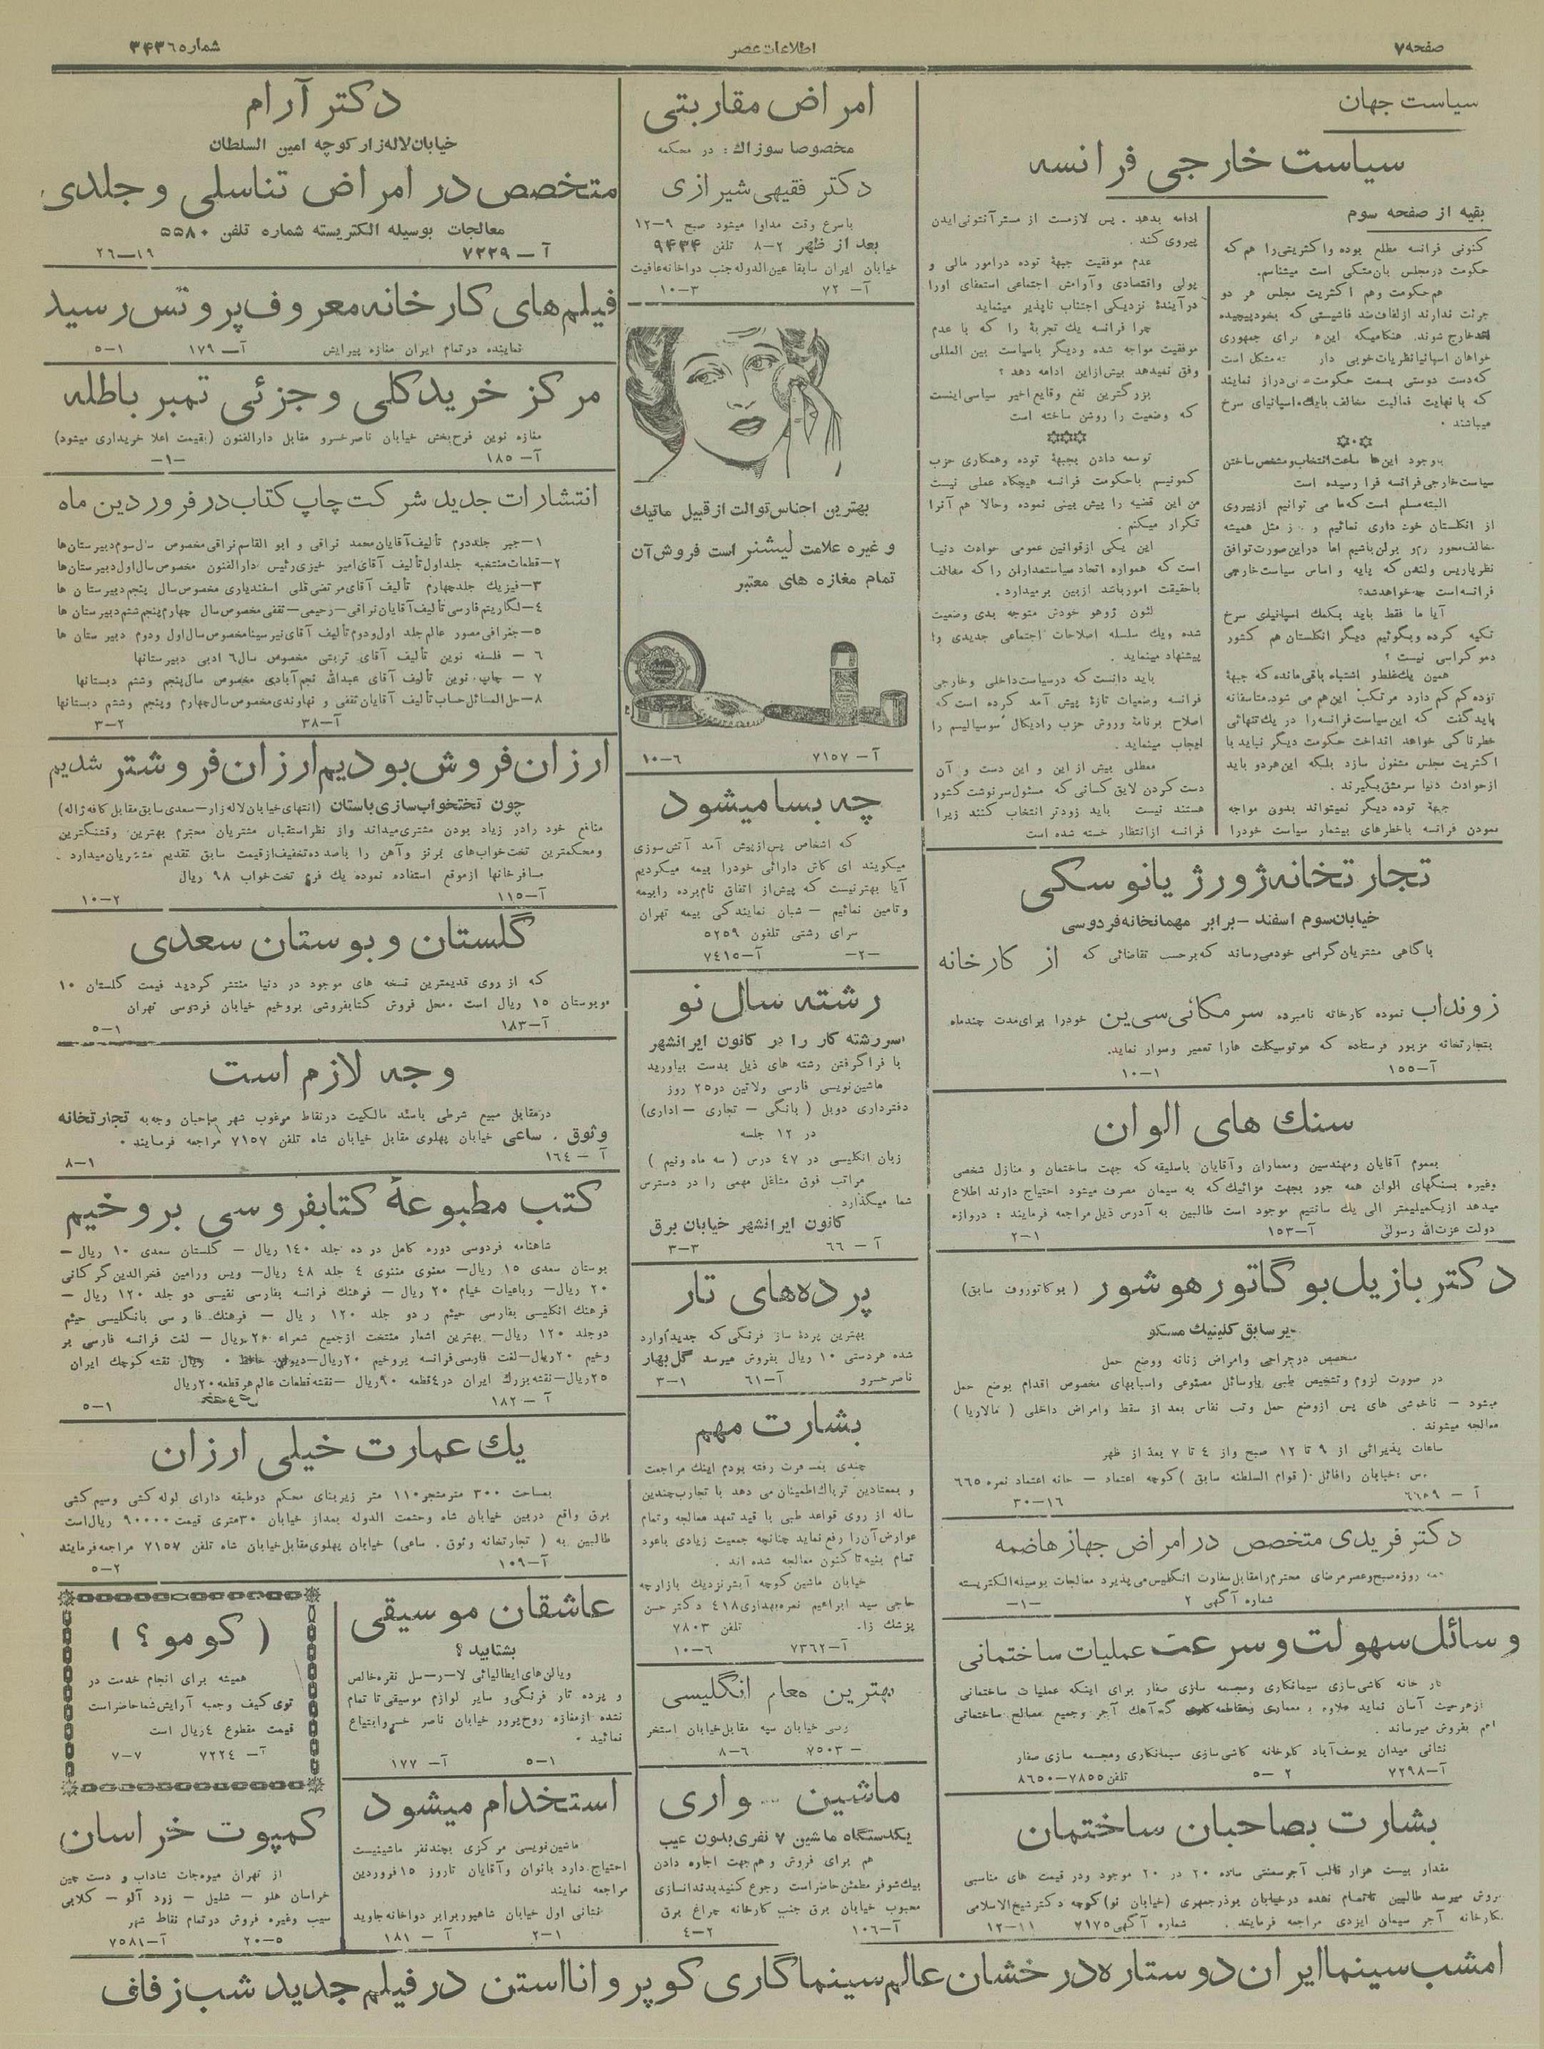 صفحه ۷
اطلاعات عصر
شماره ۳۴۳۶
سیاست جهان
سیاست خارجی فرانسه
بقیه از صفحه سوم
کنونی فرانسه مطلع بوده واکثریتی را هم که
حکومت در مجلس بان متکی است میشناسم.
هم حکومت وهم اکثریت مجلس هر دو
جرئت ندارند از لفاف ضد فاشیستی که بخود پیچیده
اند خارج شوند. هنگامیکه این ه برای جمهوری
خواهان اسپانیا نظریات خوبی دار مشکل است
که دست دوستی بسمت حکومت دراز نمایند
که با نهایت فعالیت مخالف بایک اسپانیای سرخ
میباشند .
باوجود این ها ساعت انتخاب و مشخص ساختن
سیاست خارجی فرانسه فرا رسیده است
البته مسلم است که ما می توانیم از پیروی
از انگلستان خود داری نمائیم و مثل همیشه
مخالف محور رم و برلن باشیم اما دراین صورت توافق
نظر پاریس ولندن که پایه و اساس سیاست خارجی
فرانسه است چه خواهد شد؟
آیا ما فقط باید بکمک اسپانیای سرخ
تکیه کرده وبگوئیم دیگر انگلستان هم کشور
دموکراسی نیست ؟
همین یک غلط و اشتباه باقی مانده که جبهة
توده کم کم دارد مرتکب این هم می شود. متاسفانه
باید گفت که این سیاست فرانسه را در یک تنهائی
خطرناکی خواهد انداخت حکومت دیگر نباید با
اکثریت مجلس مشغول سازد بلکه این هر دو باید
از حوادث دنیا سرمشق بگیرند .
جبهة توده دیگر نمیتواند بدون مواجه
نمودن فرانسه با خطرهای بیشمار سیاست خودرا
ادامه بدهد . پس لازمست از مستر آنتونی ایدن
پیروی کند .
عدم موفقیت جبهة توده درامور مالی و
پولی واقتصادی وآرامش اجتماعی استعفای اورا
درآیندة نزدیکی اجتناب ناپذیر مینماید
چرا فرانسه یک تجربة را که با عدم
موفقیت مواجه شده ودیگر باسیاست بین المللی
وفق نمیدهد بیش ازاین ادامه دهد ؟
بزرگترین نفع وقایع اخیر سیاسی اینست
که وضعیت را روشن ساخته است
توسعه دادن بجبهة توده وهمکاری حزب
کمونیسم باحکومت فرانسه هیچگاه عملی نیست
من این قضیه را پیش بینی نموده وحالا هم آنرا
تکرار میکنم .
این یکی از قوانین عمومی حوادث دنیا
است که همواره اتحاد سیاستمداران را که مخالف
باحقیقت امور باشد ازبین برمیدارد .
لئون ژوهو خودش متوجه بدی وضعیت
شده ویک سلسله اصلاحات اجتماعی جدیدی را
پیشنهاد مینماید .
باید دانست که درسیاست داخلی وخارجی
فرانسه وضعیات تازة پیش آمد کرده است که
اصلاح برنامة وروش حزب رادیکال سوسیالیسم را
ایجاب مینماید .
معطلی بیش از این و این دست و آن
دست کردن لایق کسانی که مسئول سرنوشت کشور
هستند نیست باید زودتر انتخاب کنند زیرا
فرانسه ازانتظار خسته شده است
تجارتخانه ژورژ یانوسکی
خیابان سوم اسفند – برابر مهمانخانه فردوسی
باگاهی مشتریان گرامی خود میرساند که برحسب تقاضائی که از کارخانه
زونداب نموده کارخانه نامبرده سرمکانی سی ین خودرا برای مدت چند ماه
بتجارتخانه مزبور فرستاده که موتوسیکلت هارا تعمیر وسوار نماید.
آ–۱۵۵ ۱–۱۰
سنک های الوان
بعموم آقایان ومهندسین ومعماران وآقایان باسلیقه که جهت ساختمان و منازل شخصی
وغیره بسنگهای الوان همه جور بجهت موزائیک که به سیمان مصرف میشود احتیاج دارند اطلاع
میدهد ازیک میلیمتر الی یک سانتیم موجود است طالبین به آدرس ذیل مراجعه فرمایند : دروازه
دولت عزت الله رسولی آ–۱۵۳ ۱–۲
دکتر بازیل بوگاتور هوشور ( بوکاتوروف سابق)
سابق کلینیک مسکو
متخصص درجراحی وامراض زنانه ووضع حمل
در صورت لزوم وتشخیص طبی باوسائل مصنوعی واسبابهای مخصوص اقدام بوضع حمل
میشود – ناخوشی های پس ازوضع حمل وتب نفاس بعد از سقط وامراض داخلی ( مالاریا )
معالجه میشوند .
ساعات پذیرائی از ۹ تا ۱۲ صبح واز ٤ تا ۷ بعد از ظهر
خیابان رافائل ( قوام السلطنه سابق ) کوچه اعتماد – خانه اعتماد نمره ٦٦٥
آ – ٦٦٥۹ ۱٦–۳۰
دکتر فریدی متخصص در امراض جهاز هاضمه
همه روزه صبح وعصر مرضای محترم را مقابل سفارت انگلیس می پذیرد معالجات بوسیله الکتریسته
شماره آگهی ۲ –۱–
وسائل سهولت و سرعت عملیات ساختمانی
کار خانه کاشی سازی سیمانکاری ومجسمه سازی صفار برای اینکه عملیات ساختمانی
ازهر حیث آسان نماید علاوه بر معماری ومقاطعه کاری گچ آهک آجر وجمیع مصالح ساختمانی
هم بفروش میرساند .
نشانی میدان یوسف آباد کارخانه کاشی سازی سیمانکاری ومجسمه سازی صفار
آ–۷۲۹۸ ۲–۵ تلفن ۷۸۵۵–۸٦۵۰
بشارت بصاحبان ساختمان
مقدار بیست هزار قالب آجر سمنتی ساده ۲۰ در ۲۰ موجود ودر قیمت های مناسبی
فروش میرسد طالبین تا تمام نشده در خیابان بوذرجمهری (خیابان نو) کوچه دکتر شیخ الاسلامی
بکارخانه آجر سیمان ایزدی مراجعه فرمایند . شماره آگهی ۷۱۷۵ ۱۱–۱۲
امراض مقاربتی
مخصوصا سوزاک : در محکمه
دکتر فقیهی شیرازی
باسرع وقت مداوا میشود صبح ۹–۱۲
بعد از ظهر ۲–۸ تلفن ۹۴۳۴
خیابان ایران سابقا عین الدوله جنب دواخانه عافیت
آ– ۷۲ ۳–۱۰
بهترین اجناس توالت از قبیل ماتیک
و غیره علامت لیشنر است فروش آن
تمام مغازه های معتبر
آ– ۷۱۵۷ ٦–۱۰
چه بسا میشود
که اشخاص پس از پیش آمد آتش سوزی
میگویند ای کاش دارائی خودرا بیمه میکردیم
آیا بهتر نیست که پیش از اتفاق نام برده را بیمه
وتامین نمائیم – شبان نمایندگی بیمه تهران
سرای رشتی تلفون ۵۲۵۹
–۲– آ–۷٤۱۵
رشته سال نو
سررشته کار را در کانون ایرانشهر
با فراگرفتن رشته های ذیل بدست بیاورید
ماشین نویسی فارسی ولاتین در ۲۵ روز
دفترداری دوبل ( بانگی – تجاری – اداری)
در ۱۲ جلسه
زبان انگلیسی در ٤۷ درس ( سه ماه ونیم )
مراتب فوق مشاغل مهمی را در دسترس
شما میگذارد .
کانون ایرانشهر خیابان برق
آ – ٦٦ ۳–۳
پرده های تار
بهترین پردة ساز فرنگی که جدیدا وارد
شده هردستی ۱۰ ریال بفروش میرسد گل بهار
ناصر خسرو آ–٦۱ ۱–۳
بشارت مهم
چندی بمسافرت رفته بودم اینک مراجعت
و بمعتادین تریاک اطمینان می دهد با تجارب چندین
ساله از روی قواعد طبی با قید تعهد معالجه وتمام
عوارض آن را رفع نماید چنانچه جمعیت زیادی باعود
تمام بنیه تا کنون معالجه شده اند .
خیابان ماشین کوچه آبشر نزدیک بازارچه
حاجی سید ابراهیم نمره بهداری ٤۱۸ دکتر حسن
پزشک زا. تلفن ۷۸۰۳
آ–۷۳٦۲ ٦–۱۰
بهترین معلم انگلیسی
خیابان سپه مقابل خیابان استخر
–۷۵۰۳ ٦–۸
ماشین سواری
یکدستگاه ماشین ۷ نفری بدون عیب
هم برای فروش و هم جهت اجاره دادن
بیک شوفر مطمئن حاضر است رجوع کنید بدندانسازی
محبوب خیابان برق جنب کارخانه چراغ برق
آ–۱۰٦ ۲–٤
دکتر آرام
خیابان لاله زار کوچه امین السلطان
متخصص در امراض تناسلی و جلدی
معالجات بوسیله الکتریسته شماره تلفن ۵۵۸۰
آ– ۷۲۳۹ ۱۹–۲٦
فیلم های کارخانه معروف پروتس رسید
نماینده در تمام ایران مغازه پیرایش آ– ۱۷۹ ۱–۵
مرکز خرید کلی و جزئی تمبر باطله
مغازه نوین فرح بخش خیابان ناصر خسرو مقابل دارالفنون (بقیمت اعلا خریداری میشود)
آ– ۱۸۵ –۱–
انتشارات جدید شرکت چاپ کتاب در فروردین ماه
۱–جبر جلد دوم تألیف آقایان محمد نراقی و ابو القاسم نراقی مخصوص سال سوم دبیرستان ها
۲–قطعات منتخبه جلد اول تألیف آقای امیر خیزی رئیس دارالفنون مخصوص سال اول دبیرستان ها
۳–فیزیک جلد چهارم تألیف آقای مرتضی قلی اسفندیاری مخصوص سال پنجم دبیرستان ها
٤–لگاریتم فارسی تألیف آقایان نراقی–رحیمی–ثقفی مخصوص سال چهارم پنجم ششم دبیرستان ها
۵–جغرافی مصور عالم جلد اول ودوم تألیف آقای نیرسینا مخصوص سال اول ودوم دبیرستان ها
٦ – فلسفه نوین تألیف آقای تربتی مخصوص سال ٦ ادبی دبیرستانها
۷ – چاپ نوین تألیف آقای عبدالله نجم آبادی مخصوص سال پنجم وششم دبستانها
۸–حل المسائل حساب تألیف آقایان ثقفی و نهاوندی مخصوص سال چهارم وپنجم وششم دبستانها
آ–۳۸ ۲–۳
ارزان فروش بودیم ارزان فروشتر شدیم
چون تختخواب سازی باستان (انتهای خیابان لاله زار–سعدی سابق مقابل کافه ژاله)
منافع خود را در زیاد بودن مشتری میداند واز نظر استقبال مشتریان محترم بهترین وقشنگترین
ومحکمترین تخت خواب های برنز وآهن را با صد ده تخفیف از قیمت سابق تقدیم مشتریان میدارد .
مسافرخانها ازموقع استفاده نموده یک فرع تخت خواب ۹۸ ریال
آ–۱۱۵ ۲–۱۰
گلستان و بوستان سعدی
که از روی قدیمترین نسخه های موجود در دنیا منتشر گردید قیمت گلستان ۱۰
وبوستان ۱۵ ریال است . محل فروش کتابفروشی بروخیم خیابان فردوسی تهران
آ–۱۸۳ ۱–۵
وجه لازم است
درمقابل مبیع شرطی باسند مالکیت درنقاط مرغوب شهر صاحبان وجه به تجارتخانه
وثوق . ساعی خیابان پهلوی مقابل خیابان شاه تلفن ۷۱۵۷ مراجعه فرمایند .
آ – ۱٦٤ ۱–۸
کتب مطبوعة کتابفروسی بروخیم
شاهنامه فردوسی دوره کامل در ده جلد ۱٤۰ ریال – گلستان سعدی ۱۰ ریال –
بوستان سعدی ۱۵ ریال– معنوی مثنوی ٤ جلد ٤۸ ریال– ویس ورامین فخرالدین گرگانی
۲۰ ریال– رباعیات خیام ۲۰ ریال – فرهنگ فرانسه بفارسی نفیسی دو جلد ۱۲۰ ریال –
فرهنگ انگلیسی بفارسی حیثیم در دو جلد ۱۲۰ ریال – فرهنگ فارسی بانگلیسی حیثیم
دوجلد ۱۲۰ ریال– بهترین اشعار منتخب ازجمیع شعراء ۲۰ ریال – لغت فرانسه فارسی بر
وخیم ۲۰ ریال–لغت فارسی فرانسه بروخیم ۲۰ ریال–دیوان حافظ ریال نقشه کوچک ایران
۲۵ ریال–نقشه بزرگ ایران در ٤ قطعه ۹۰ ریال –نقشه قطعات عالم هر قطعه ۲۰ ریال
آ– ۱۸۲ ۱–۵
یک عمارت خیلی ارزان
بمساحت ۳۰۰ مترمتجر ۱۱۰ متر زیربنای محکم دوطبقه دارای لوله کشی وسیم کشی
برق واقع در بین خیابان شاه وحشمت الدوله بعداز خیابان ۳۰ متری قیمت ۹۰۰۰۰ ریال است
طالبین به ( تجارتخانه وثوق . ساعی) خیابان پهلوی مقابل خیابان شاه تلفن ۷۱۵۷ مراجعه فرمایند
آ–۱۰۹ ۲–۵
عاشقان موسیقی
بشتابید ؟
ویالن های ایطالیائی لا–ر–سل نقره خالص
و پرده تار فرنگی و سایر لوازم موسیقی تا تمام
نشده ازمغازه روح پرور خیابان ناصر خسرو ابتیاع
نمائید .
۱–۵ آ– ۱۷۷
استخدام میشود
ماشین نویسی مرکزی بچند نفر ماشینیست
احتیاج دارد بانوان وآقایان تاروز ۱۵ فروردین
مراجعه نمایند
نشانی اول خیابان شاهپور برابر دواخانه جاوید
۱–۲ آ – ۱۸۱
( کومو ؟ )
همیشه برای انجام خدمت در
توی کیف وجعبه آرایش شما حاضر است
قیمت مقطوع ٤ ریال است
آ– ۷۲۲٤ ۷–۷
کمپوت خراسان
از تهران میوه جات شاداب و دست چین
خراسان هلو – شلیل – زرد آلو – گلابی
سیب وغیره فروش درتمام نقاط شهر
۵–۲۰ آ–۷۵۸۱
امشب سینما ایران دو ستاره درخشان عالم سینما گاری کوپر و انا استن در فیلم جدید شب زفاف